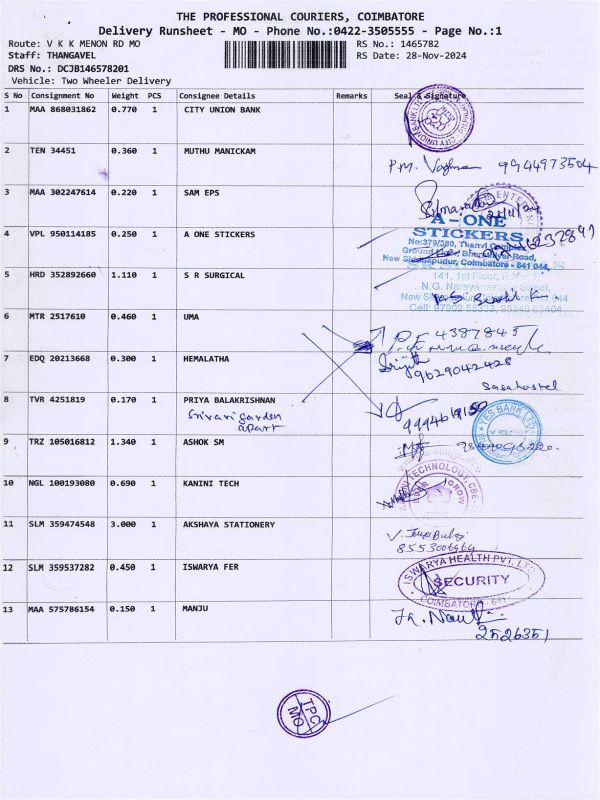 THE PROFESSIONAL COURIERS, COIMBATORE
Delivery Runsheet - MO - Phone No.:0422-3505555 - Page No.:1
Route: V K K MENON RD MO
RS No.: 1465782
Staff: THANGAVEL
RS Date: 28-Nov-2024
DRS No.: DCJB146578201
Vehicle: Two Wheeler Delivery
S No Consignment No Weight PCS Consignee Details Remarks Seal & Signature
1 MAA 868031862 0.770 1 CITY UNION BANK
2 TEN 34451 0.360 1 MUTHU MANICKAM
9944973504
3 MAA 302247614 0.220 1 SAM EPS
A-ONE
STICKERS
4 VPL 950114185 0.250 1 A ONE STICKERS
No:379/380, Thanvi Complex
Ground Floor, Bharathiyar Road,
New Siddhapudur, Coimbatore - 641 044.
5 HRD 352892660 1.110 1 S R SURGICAL
141, 1st Floor,
N.G. Narayanasamy
6 MTR 2517610 0.460 1 UMA
4387845
7 EDQ 20213668 0.300 1 HEMALATHA
9629042428
Sasahostel
8 TVR 4251819 0.170 1 PRIYA BALAKRISHNAN
Srivari garden
apart
YES BANK LTD
9 TRZ 105016812 1.340 1 ASHOK SM
10 NGL 100193080 0.690 1 KANINI TECH
TECHNOLOGY, CBE
11 SLM 359474548 3.000 1 AKSHAYA STATIONERY
8553006464
12 SLM 359537282 0.450 1 ISWARYA FER
ISWARYA HEALTH PVT. LTD
SECURITY
COIMBATORE
13 MAA 575786154 0.150 1 MANJU
2526351
TPC
MO